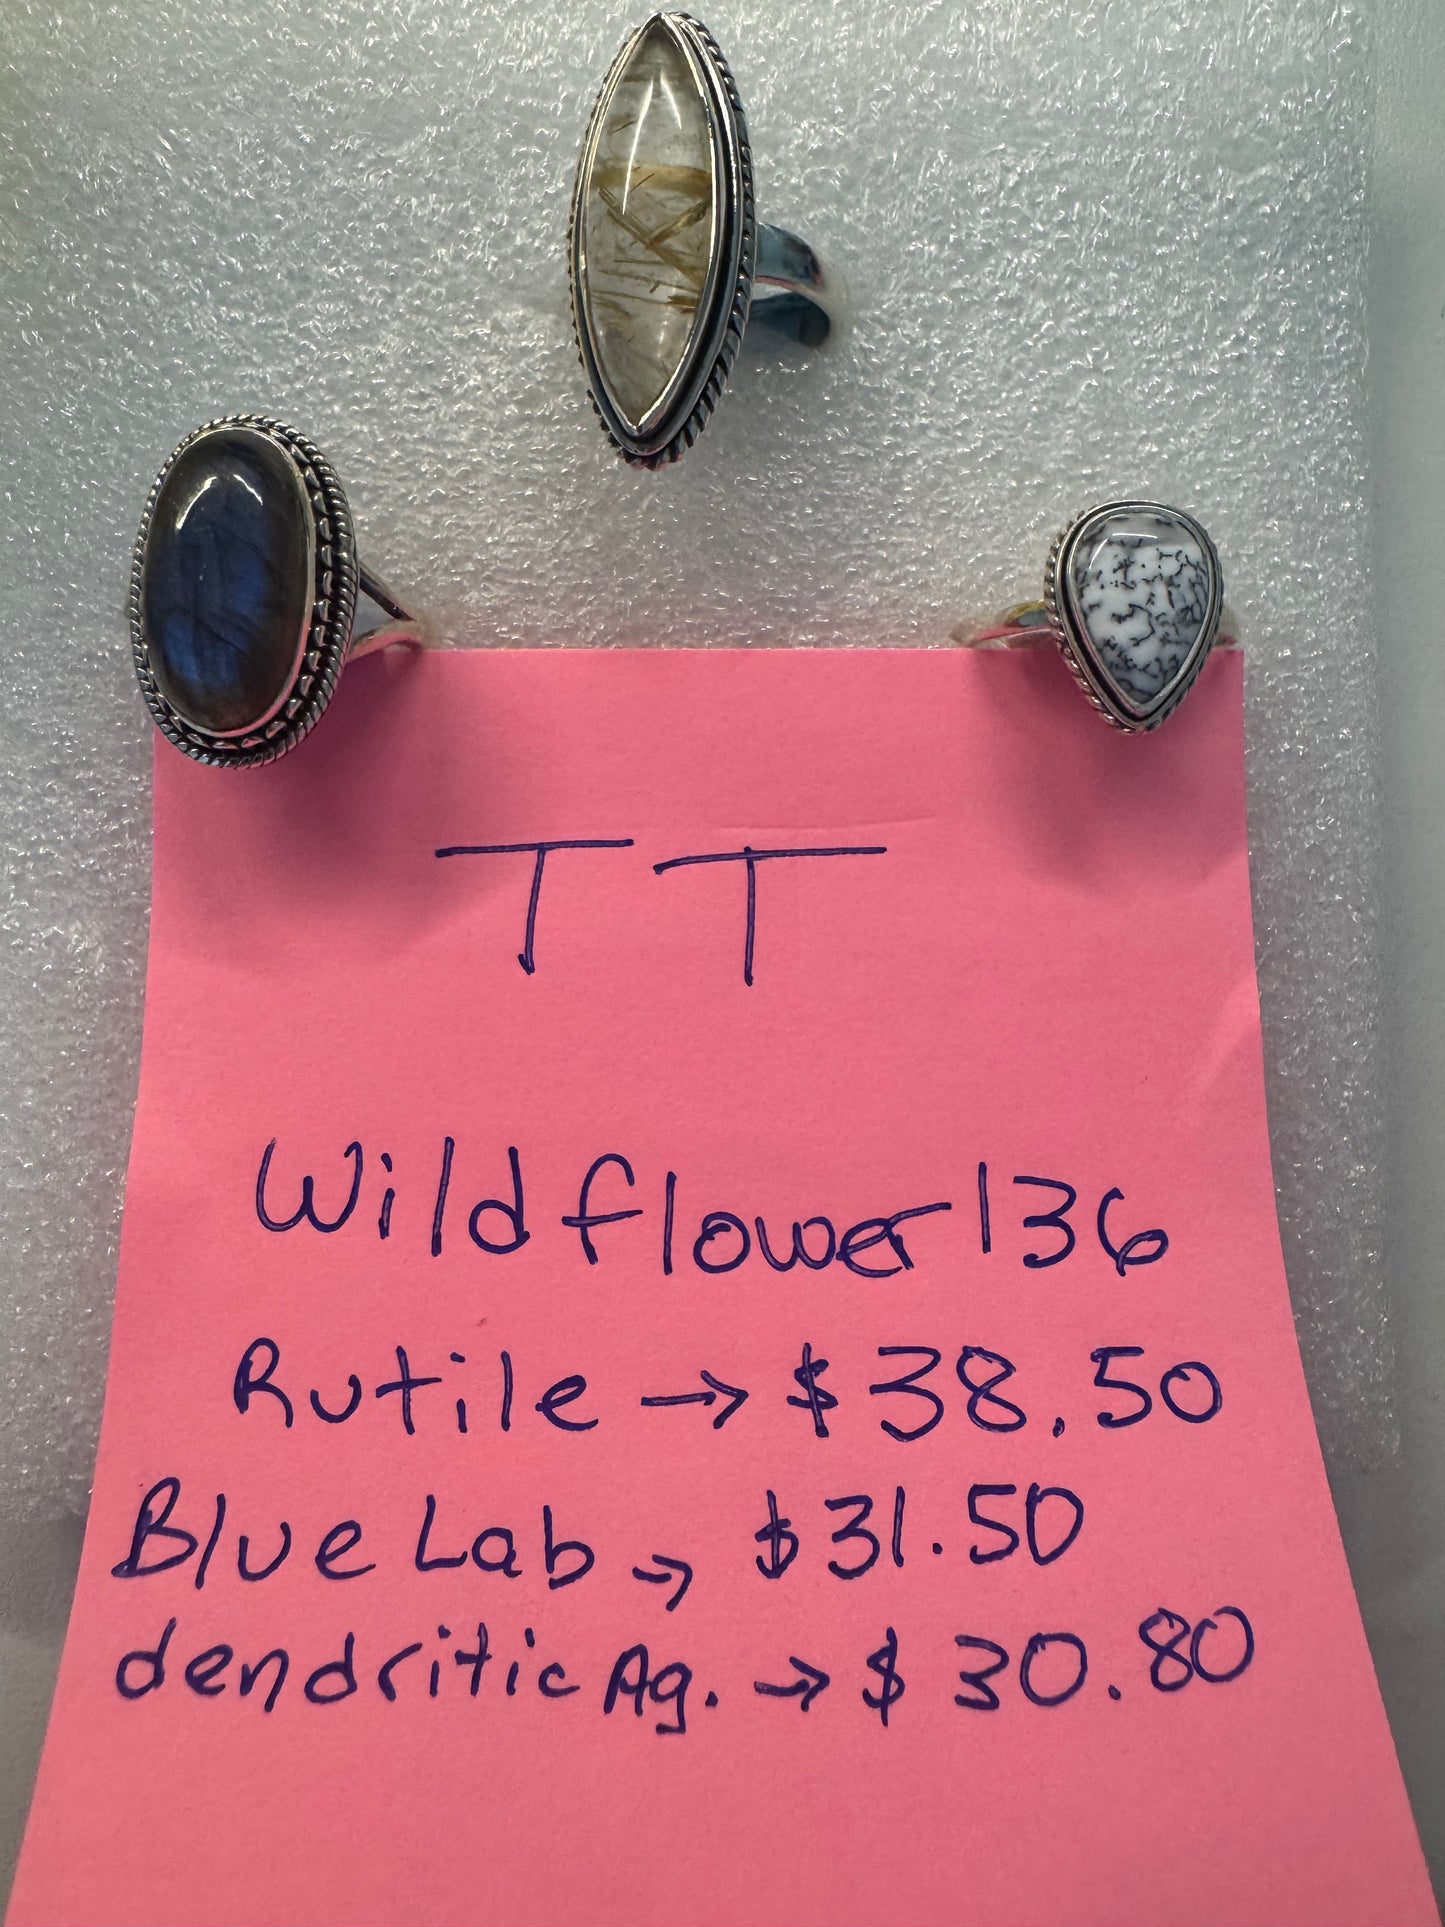 TT
Wildflower136
Rutile → $38.50
Blue Lab → $31.50
dendritic Ag. → $30.80